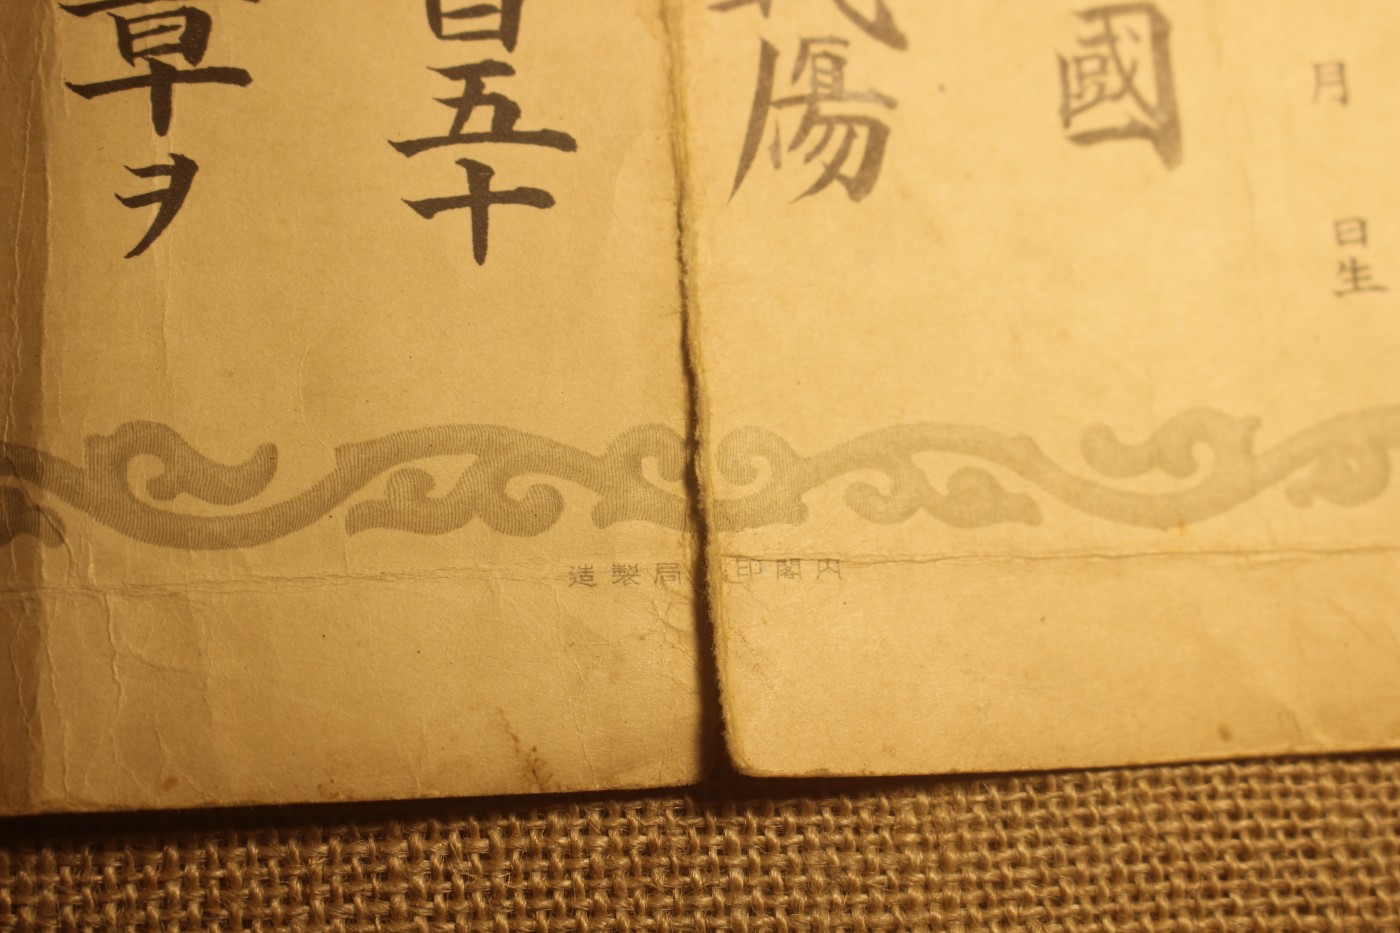 月 日生
國
傷
百五十
章ヲ
内閣印 局製造